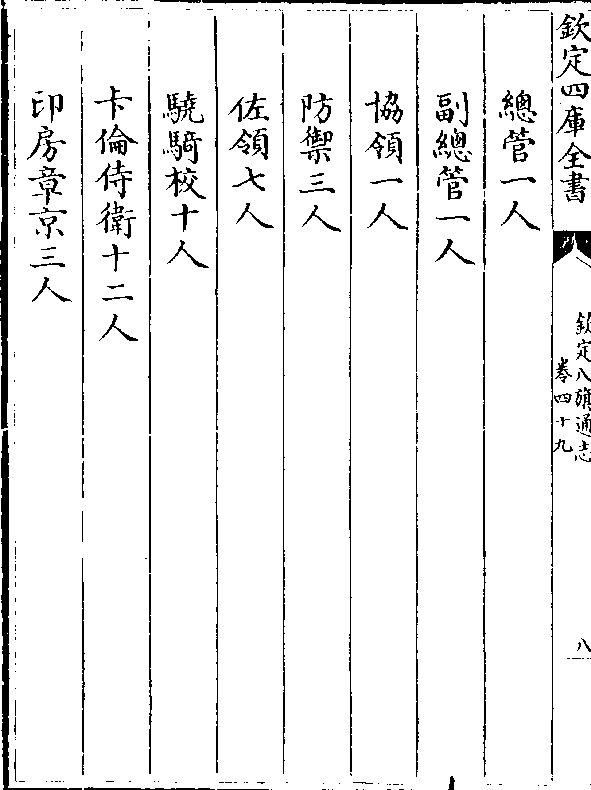 欽定四庫全書
欽定八旗通志
卷四十九
八
總管一人
副總管一人
協領一人
防禦三人
佐領七人
驍騎校十人
卡倫侍衛十二人
印房章京三人